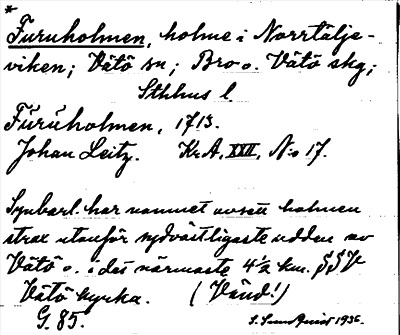 *
Furuholmen, holme i Norrtälje-
viken; Vätö sn; Bro o. Vätö skg;
Sthlms l.
Fŭrŭholmen, 1713.
Johan Leitz. Kr.A, XXII, No 17.
Synbarl. har namnet avsett holmen
strax utanför sydvästligaste udden av
Vätö o. i det närmaste 4 ½ km. SSV
Vätö kyrka. (Vänd!)
G. 85.
1936.